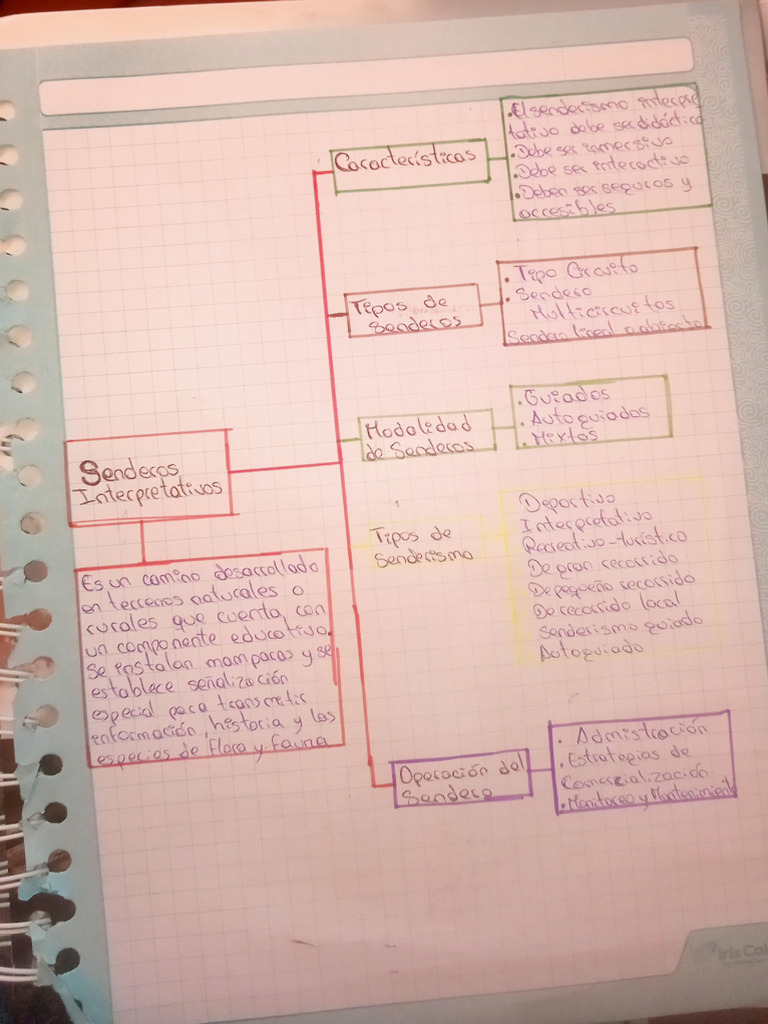 Senderos
Interpretativos
Es un camino desarrollado
en terrenos naturales o
rurales que cuenta con
un componente educativo.
Se instalan mamparas y se
establece señalización
especial para transmitir
información, historia y las
especies de flora y fauna
Características
•El senderismo interpre
tativo debe ser didáctico
•Debe ser inmersivo
•Debe ser interactivo
•Deben ser seguros y
accesibles
Tipos de
Senderos
• Tipo Circuito
• Sendero
Multicircuitos
Sendero lineal o abierto
Modalidad
de Senderos
•Guiados
• Autoguiados
• Mixtos
Tipos de
Senderismo
Deportivo
Interpretativo
Recreativo-turístico
De gran recorrido
De pequeño recorrido
De recorrido local
Senderismo guiado
Autoguiado
Operación del
Sendero
• Admistración
•Estrategias de
Comercialización
•Monitoreo y Mantenimiento